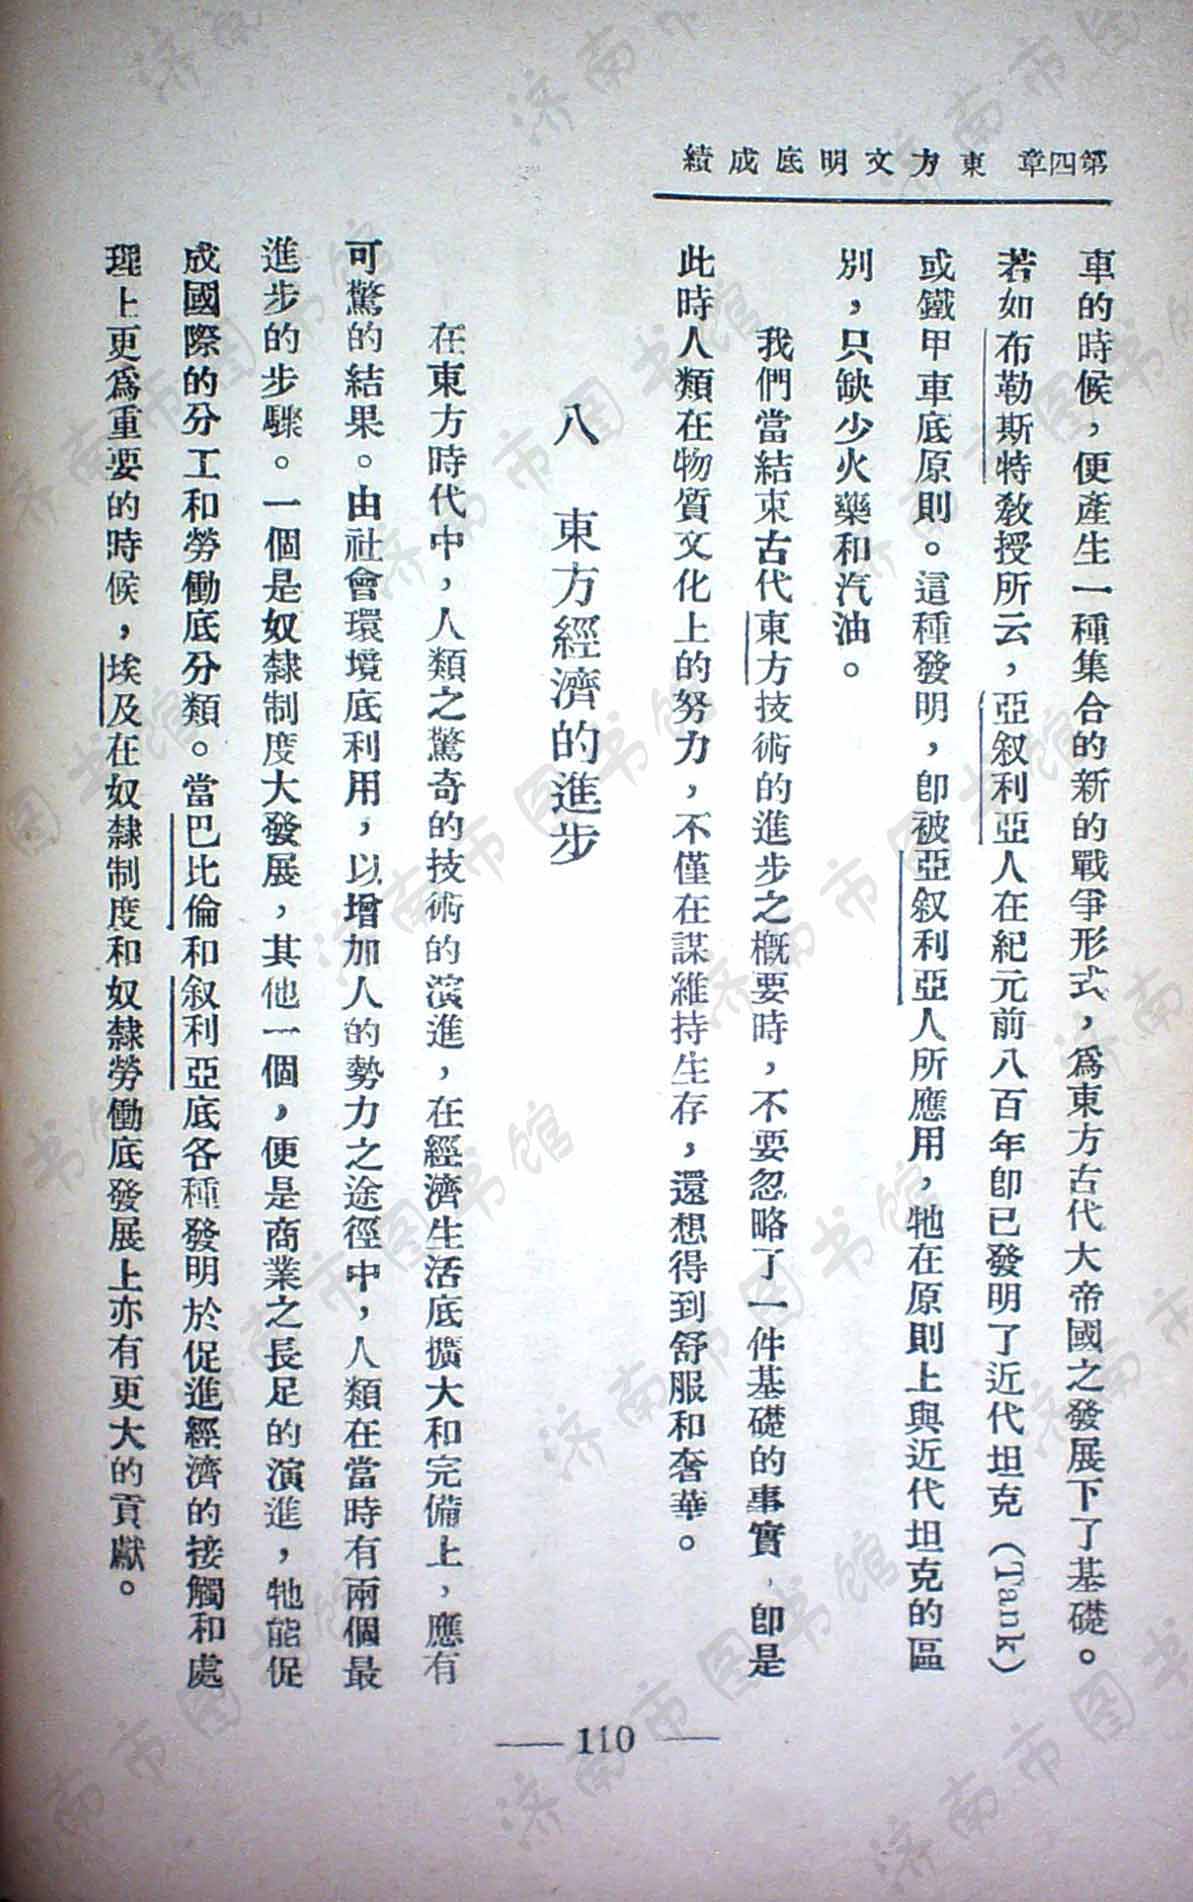 第四章 東方文明底成績
車的時候，便產生一種集合的新的戰爭形式，爲東方古代大帝國之發展下了基礎。
若如布勒斯特教授所云，亞叙利亞人在紀元前八百年卽已發明了近代坦克（Tank）
或鐵甲車底原則。這種發明，卽被亞叙利亞人所應用，牠在原則上與近代坦克的區
別，只缺少火藥和汽油。
我們當結束古代東方技術的進步之概要時，不要忽略了一件基礎的事實，卽是
此時人類在物質文化上的努力，不僅在謀維持生存，還想得到舒服和奢華。
八 東方經濟的進步
在東方時代中，人類之驚奇的技術的演進，在經濟生活底擴大和完備上，應有
可驚的結果。由社會環境底利用，以增加人的勢力之途徑中，人類在當時有兩個最
進步的步驟。一個是奴隸制度大發展，其他一個，便是商業之長足的演進，牠能促
成國際的分工和勞働底分類。當巴比倫和叙利亞底各種發明於促進經濟的接觸和處
理上更爲重要的時候，埃及在奴隸制度和奴隸勞働底發展上亦有更大的貢獻。
— 110 —
济南市图书馆